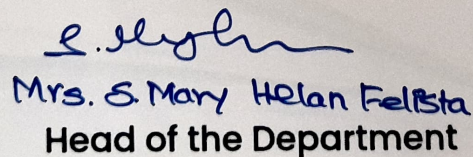 Mrs. S. Mary Helan Felista
Head of the Department